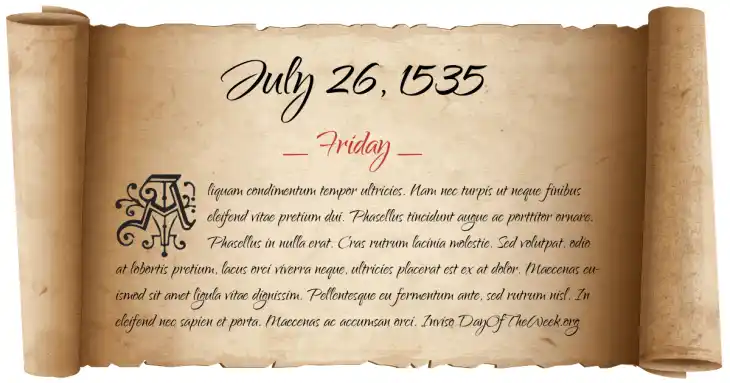 July 26, 1535
— Friday —
Aliquam condimentum tempor ultricies. Nam nec turpis ut neque finibus
eleifend vitae pretium dui. Phasellus tincidunt augue ac porttitor ornare.
Phasellus in nulla erat. Cras rutrum lacinia molestie. Sed volutpat, odio
at lobortis pretium, lacus orci viverra neque, ultricies placerat est ex at dolor. Maecenas eu-
ismod sit amet ligula vitae dignissim. Pellentesque eu fermentum ante, sed rutrum nisl. In
eleifend nec sapien et porta. Maecenas ac accumsan orci. Inviso DayOfTheWeek.org